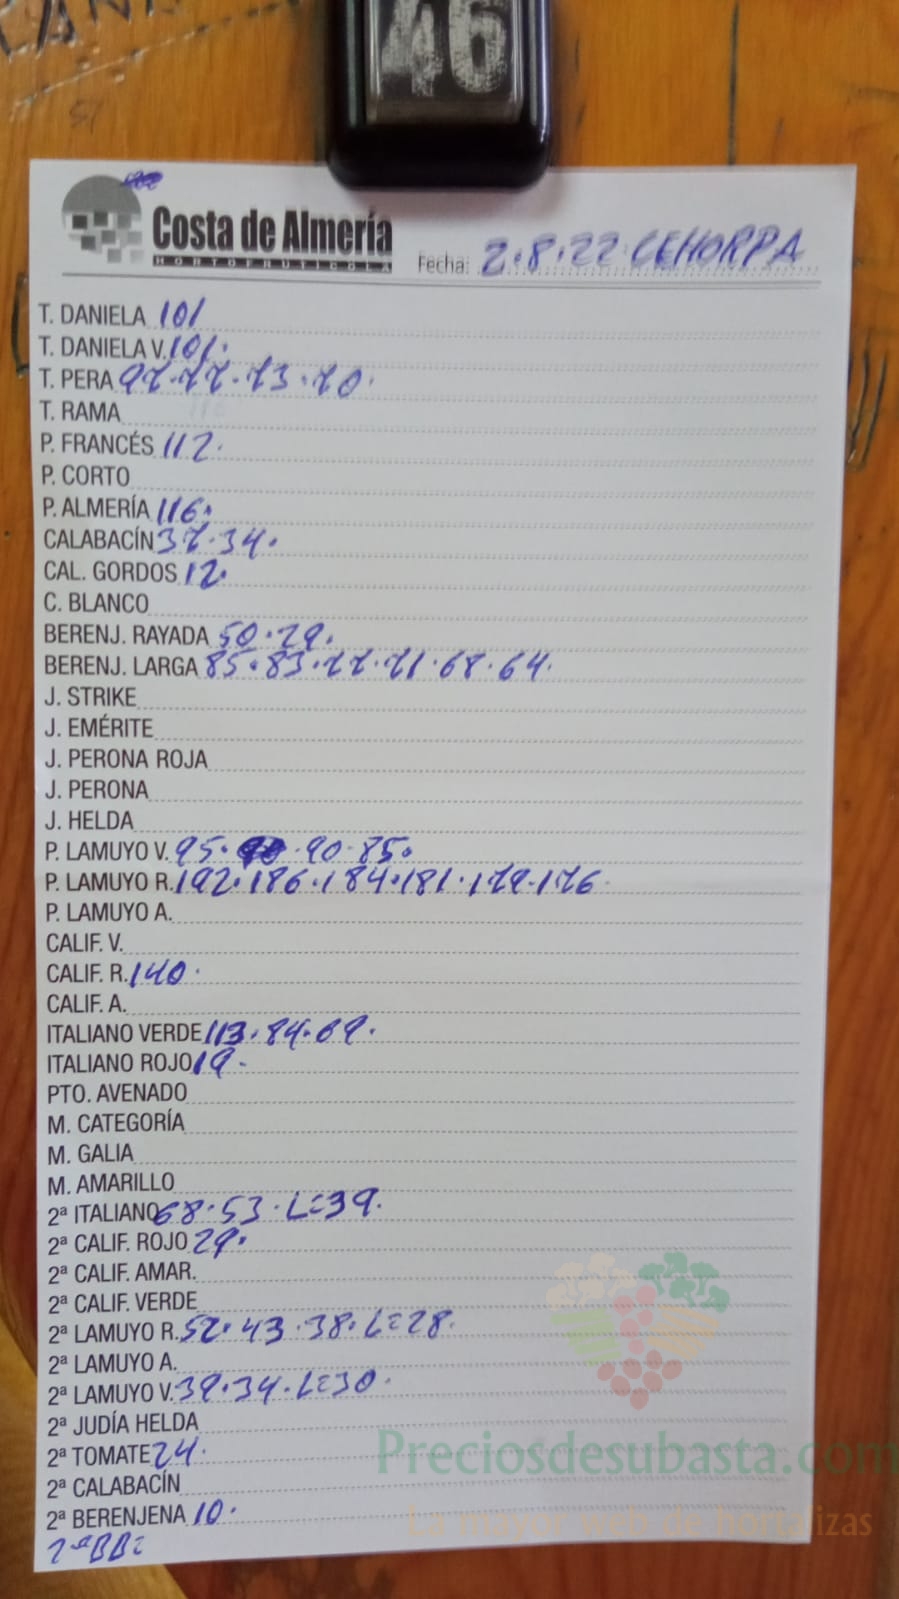 46
Costa de Almería
HORTOFRUTICOLA
Fecha: 2.8.22 CEHORPA
T. DANIELA 101
T. DANIELA V. 101.
T. PERA 97.77.73.70.
T. RAMA
P. FRANCÉS 112.
P. CORTO
P. ALMERÍA 116.
CALABACÍN 37.34.
CAL. GORDOS 12.
C. BLANCO
BERENJ. RAYADA 50.29.
BERENJ. LARGA 85.83.77.71.68.64.
J. STRIKE
J. EMÉRITE
J. PERONA ROJA
J. PERONA
J. HELDA
P. LAMUYO V. 95. .90.85.
P. LAMUYO R. 192.186.184.181.179.176.
P. LAMUYO A.
CALIF. V.
CALIF. R. 140.
CALIF. A.
ITALIANO VERDE 113.84.69.
ITALIANO ROJO 19.
PTO. AVENADO
M. CATEGORÍA
M. GALIA
M. AMARILLO
2ª ITALIANO 68.53.L=39.
2ª CALIF. ROJO 29.
2ª CALIF. AMAR.
2ª CALIF. VERDE
2ª LAMUYO R. 52.43.38.L=28.
2ª LAMUYO A.
2ª LAMUYO V. 39.34.L=30.
2ª JUDÍA HELDA
2ª TOMATE 24.
2ª CALABACÍN
2ª BERENJENA 10.
2ªBB=
Preciosdesubasta.com
La mayor web de hortalizas